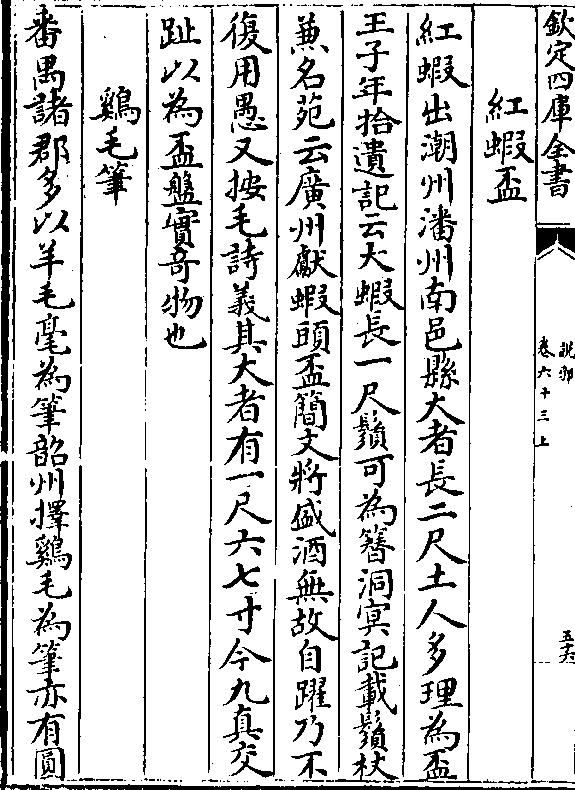 欽定四庫全書
說郛
卷六十三上
五十六
紅蝦盃
紅蝦出潮州潘州南邑縣大者長二尺土人多理為盃
王子年拾遺記云大蝦長一尺鬚可為簪洞冥記載鬚杖
兼名苑云廣州獻蝦頭盃簡文將盛酒無故自躍乃不
復用愚又按毛詩義其大者有一尺六七寸今九真交
趾以為盃盤實奇物也
鷄毛筆
番禺諸郡多以羊毛毫為筆韶州擇鷄毛為筆亦有圓